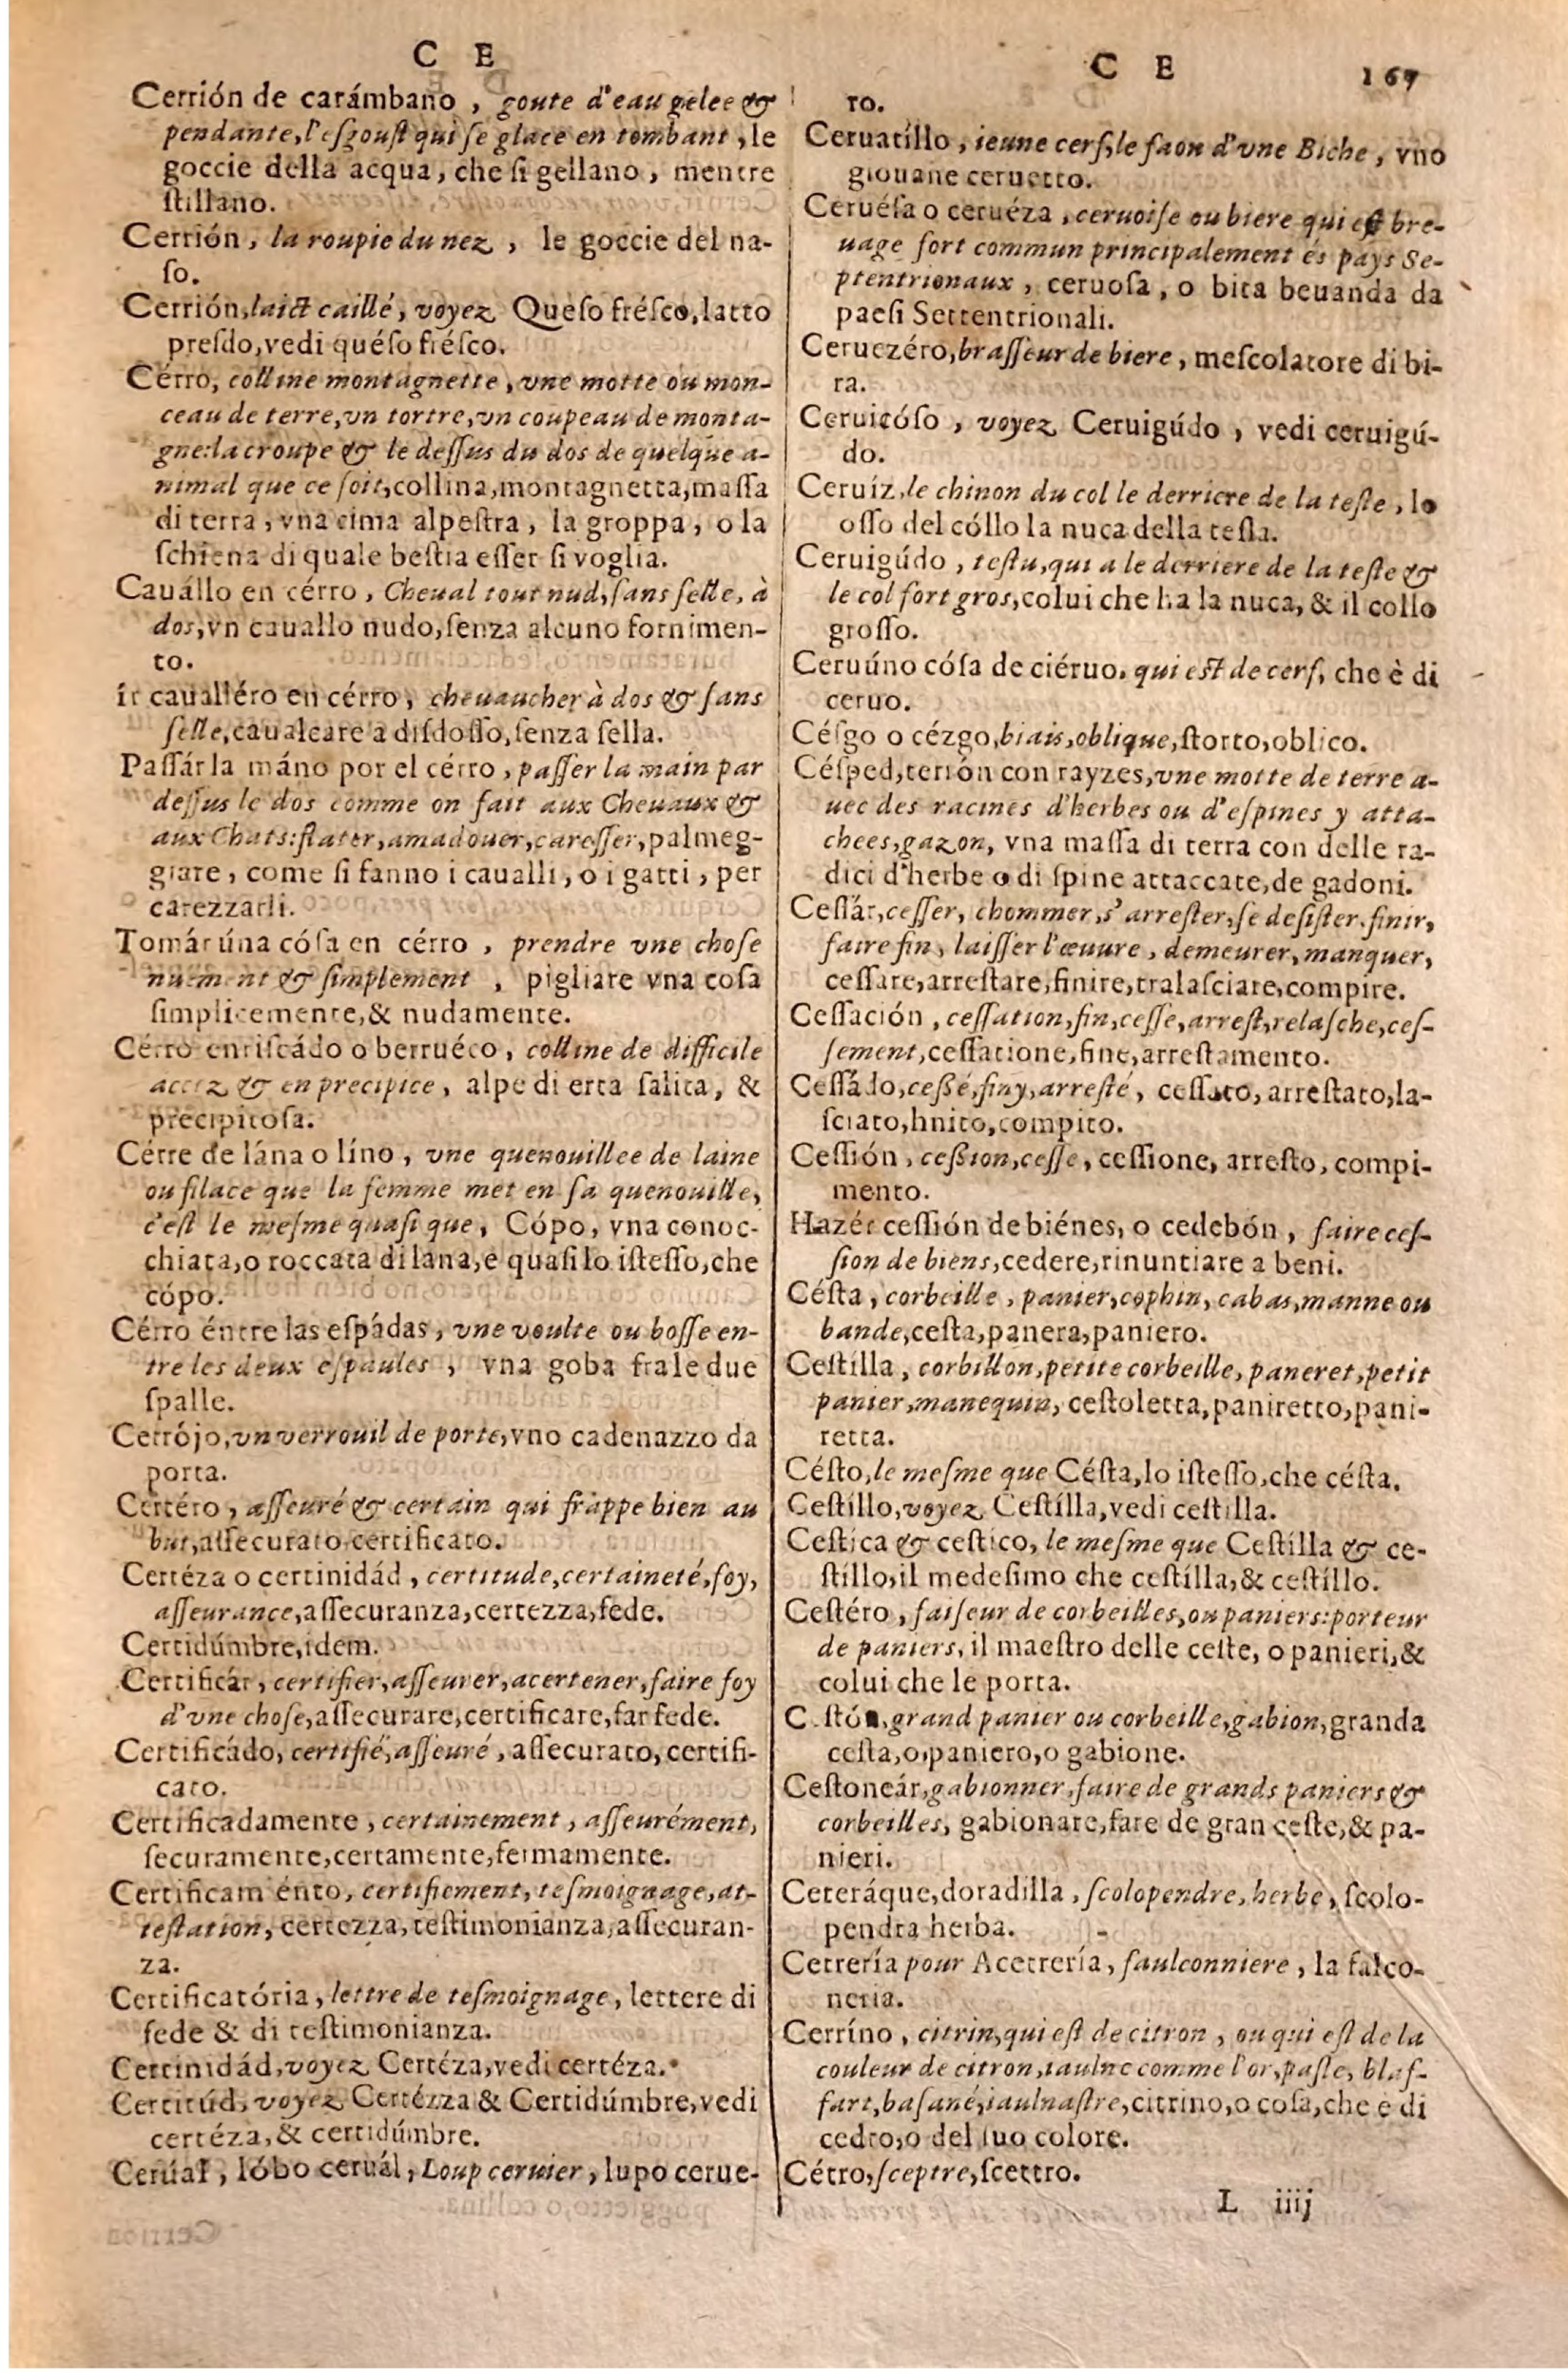 C E
Cerrión de carámbano, goute d'eau gelee &
pendante, l'esgoust qui se glace en tombant, le
goccie della acqua, che si gellano, mentre
stillano.
Cerrión, la roupie du nez, le goccie del na-
so.
Cerrión, laict caillé, voyez Queso frésco, latto
presdo, vedi quéso frésco.
Cérro, colline montagnette, vne motte ou mon-
ceau de terre, vn tortre, vn coupeau de monta-
gne: la croupe & le dessus du dos de quelque a-
nimal que ce soit, collina, montagnetta, massa
di terra, vna cima alpestra, la groppa, o la
schiena di quale bestia esser si voglia.
Cauállo en cérro, Cheual tout nud, sans selle, à
dos, vn cauallo nudo, senza alcuno fornimen-
to.
ír cauálléro en cérro, cheuaucher à dos & sans
selle, caualcare a disdosso, senza sella.
Passár la máno por el cérro, passer la main par
dessus le dos comme on fait aux Cheuaux &
aux Chats: flater, amadouer, caresser, palmeg-
giare, come si fanno i caualli, o i gatti, per
carezzarli.
Tomár úna cósa en cérro, prendre vne chose
nuement & simplement, pigliare vna cosa
simplicemente, & nudamente.
Cérro enriscádo o berruéco, colline de difficile
accez & en precipice, alpe di erta salita, &
precipitosa.
Cérre de lána o líno, vne quenouillee de laine
ou filace que la femme met en sa quenouille,
c'est le mesme quasi que, Cópo, vna conoc-
chiata, o roccata di lana, e quasi lo istesso, che
cópo.
Cérro éntre las espádas, vne voulte ou bosse en-
tre les deux espaules, vna goba fra le due
spalle.
Cerrójo, vn verrouil de porte, vno cadenazzo da
porta.
Certéro, asseuré & certain qui frappe bien au
but, assecurato, certificato.
Certéza o certinidád, certitude, certaineté, foy,
asseurance, assecuranza, certezza, fede.
Certidúmbre, idem.
Certificár, certifier, asseurer, acertener, faire foy
d'vne chose, assecurare, certificare, far fede.
Certificádo, certifié, asseuré, assecurato, certifi-
cato.
Certificadamente, certainement, asseurément,
securamente, certamente, fermamente.
Certificam énto, certifiement, tesmoignage, at-
testation, certezza, testimonianza, assecuran-
za.
Certificatória, lettre de tesmoignage, lettere di
fede & di testimonianza.
Certinidád, voyez Certéza, vedi certéza.
Certitúd, voyez Certézza & Certidúmbre, vedi
certéza, & certidúmbre.
Ceruál, lóbo ceruál, Loup ceruier, lupo cerue-
C E 167
ro.
Ceruatíllo, ieune cerf, le faon d'vne Biche, vno
giouane ceruetto.
Ceruésa o ceruéza, ceruoise ou biere qui est bre-
uage fort commun principalement és pays Se-
ptentrionaux, ceruosa, o bita beuanda da
paesi Settentrionali.
Ceruezéro, brasseur de biere, mescolatore di bi-
ra.
Ceruicóso, voyez Ceruigúdo, vedi ceruigú-
do.
Ceruíz, le chinon du col le derriere de la teste, lo
osso del cóllo la nuca della testa.
Ceruigúdo, testu, qui a le derriere de la teste &
le col fort gros, colui che ha la nuca, & il collo
grosso.
Ceruúno cósa de ciéruo, qui est de cerf, che è di
ceruo.
Césgo o cézgo, biais, oblique, storto, oblico.
Césped, terrón con rayzes, vne motte de terre a-
uec des racines d'herbes ou d'espines y atta-
chees, gazon, vna massa di terra con delle ra-
dici d'herbe o di spine attaccate, de gadoni.
Cessár, cesser, chommer, s'arrester, se desister, finir,
faire fin, laisser l'œuure, demeurer, manquer,
cessare, arrestare, finire, tralasciare, compire.
Cessación, cessation, fin, cesse, arrest, relasche, ces-
sement, cessatione, fine, arrestamento.
Cessádo, cessé, finy, arresté, cessato, arrestato, la-
sciato, hnito, compito.
Cessión, cession, cesse, cessione, arresto, compi-
mento.
Hazér cessión de biénes, o cedebón, faire ces-
sion de biens, cedere, rinuntiare a beni.
Césta, corbeille, panier, cophin, cabas, manne ou
bande, cesta, panera, paniero.
Cestílla, corbillon, petite corbeille, paneret, petit
panier, manequin, cestoletta, paniretto, pani-
retta.
Césto, le mesme que Césta, lo istesso, che césta.
Cestíllo, voyez Cestílla, vedi cestilla.
Cestica & cestico, le mesme que Cestílla & ce-
stíllo, il medesimo che cestílla, & cestíllo.
Cestéro, faiseur de corbeilles, ou paniers: porteur
de paniers, il maestro delle ceste, o panieri, &
colui che le porta.
C stón, grand panier ou corbeille, gabion, granda
cesta, o, paniero, o gabione.
Cestoneár, gabionner, faire de grands paniers &
corbeilles, gabionare, fare de gran ceste, & pa-
nieri.
Ceteráque, doradilla, scolopendre, herbe, scolo-
pendra herba.
Cetrería pour Acetrería, faulconniere, la falco-
neria.
Cerríno, citrin, qui est de citron, ou qui est de la
couleur de citron, iaulne comme l'or, pasle, blas-
fart, basané, iaulnastre, citrino, o cosa, che e di
cedro, o del suo colore.
Cétro, sceptre, scettro.
L iiij